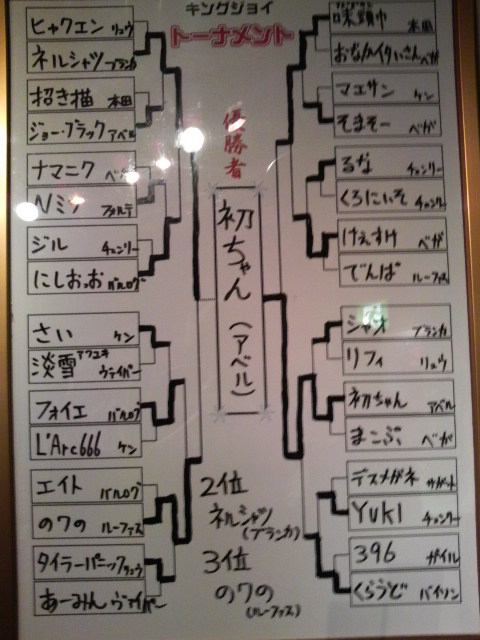 キングジョイ
トーナメント
ヒャクエン リュウ
ネルシャツ ブランカ
招き猫 本田
ジョー・ブラック アベル
ナマニク
Nミソ フォルテ
ジル チュンリー
にしおっお バルログ
さい ケン
淡雪 アワユキ ヴァイパー
フォイエ バルログ
L'Arc666 ケン
エイト バルログ
の7の ルーファス
タイラーバーック リュウ
あーみん ヴァイパー
優勝者
初ちゃん (アベル)
2位
ネルシャツ
(ブランカ)
3位
の7の
(ルーファス)
味頭巾 本田
おなかイタいさん ベガ
マエサン ケン
そまそー ベガ
るな チュンリー
くろにぃそ チュンリー
けぇすけ ベガ
でんぱ ルーファス
シャオ ブランカ
リフィ リュウ
初ちゃん アベル
まこぷ ベガ
デスメガネ サガット
YUKI チュンリー
396 ガイル
くらうど バイソン